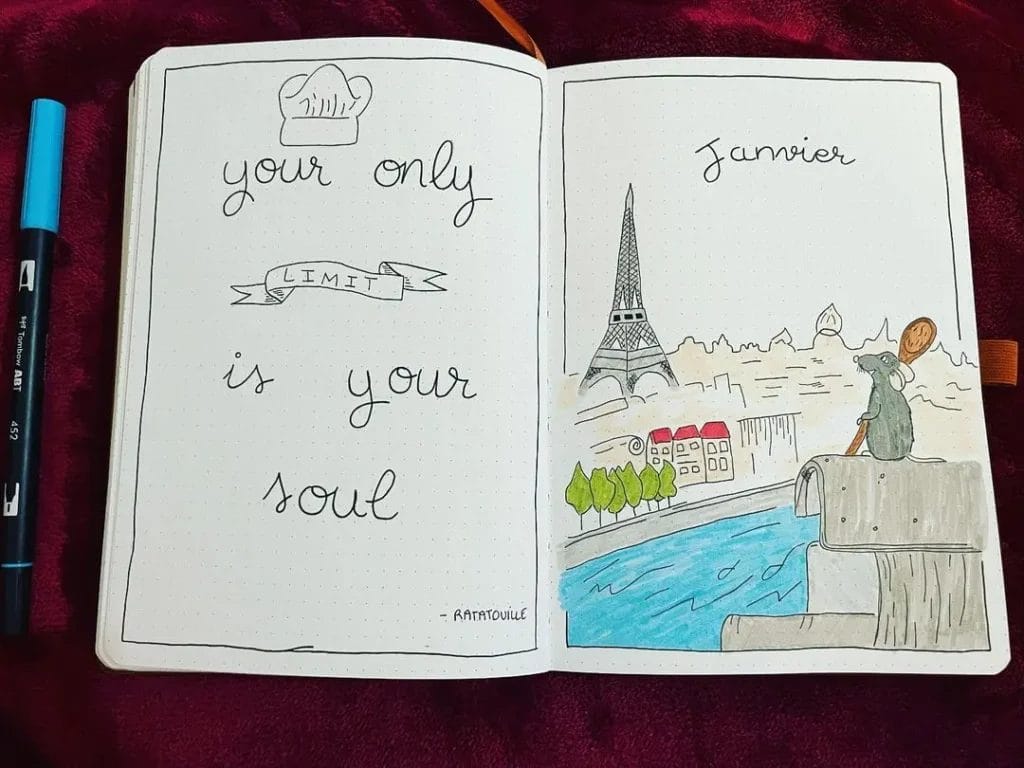 your only
LIMIT
is your
soul
- RATATOUILLE
Janvier
Tombow ABT
452